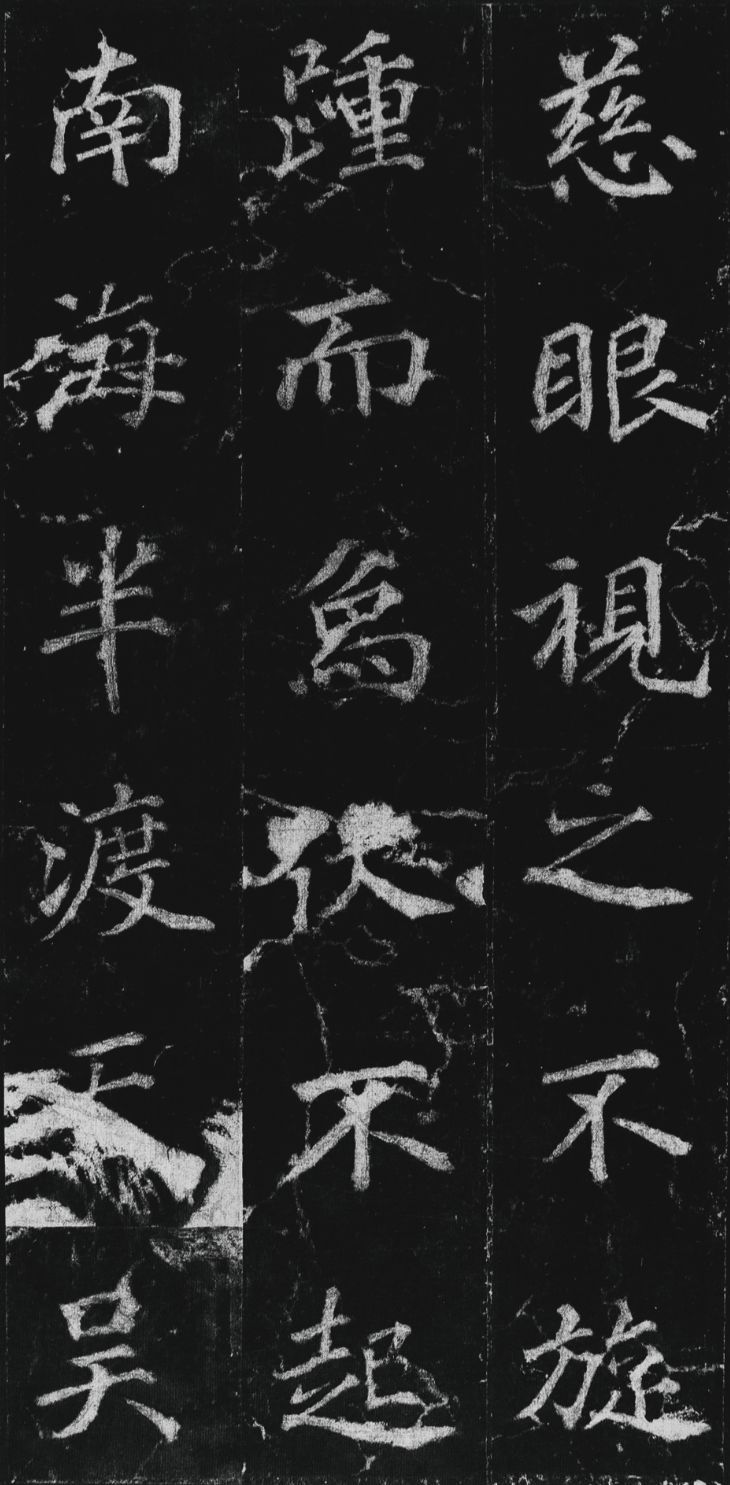 慈眼視之不旋
踵而為伏不起
南海半渡天吴